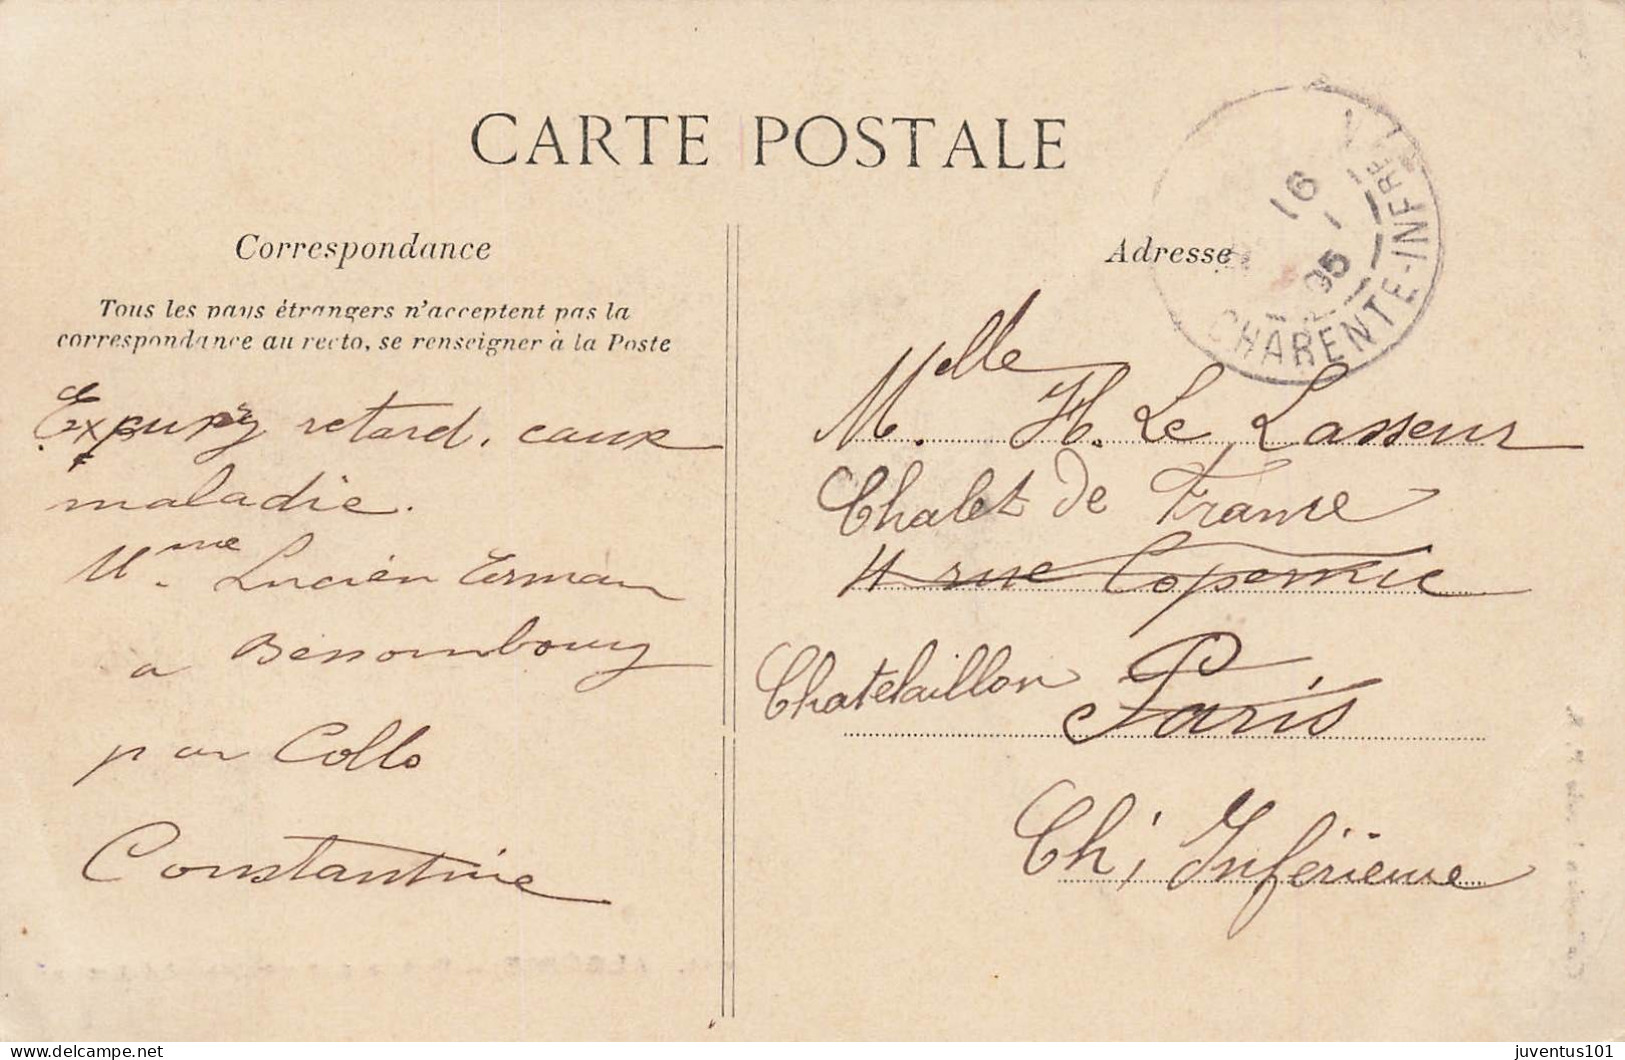 CARTE POSTALE
Correspondance
Tous les pays étrangers n'acceptent pas la
correspondance au recto, se renseigner à la Poste
retard. cause
maladie.
Mme Lucien Erman
a Bessombourg
par Collo
Constantine
Adresse
16
05
CHARENTE-INFRE
Melle H. Le Lasseur
Chalet de France
4 rue Copernic
Chatelaillon Paris
Ch; Inférieure
juventus101